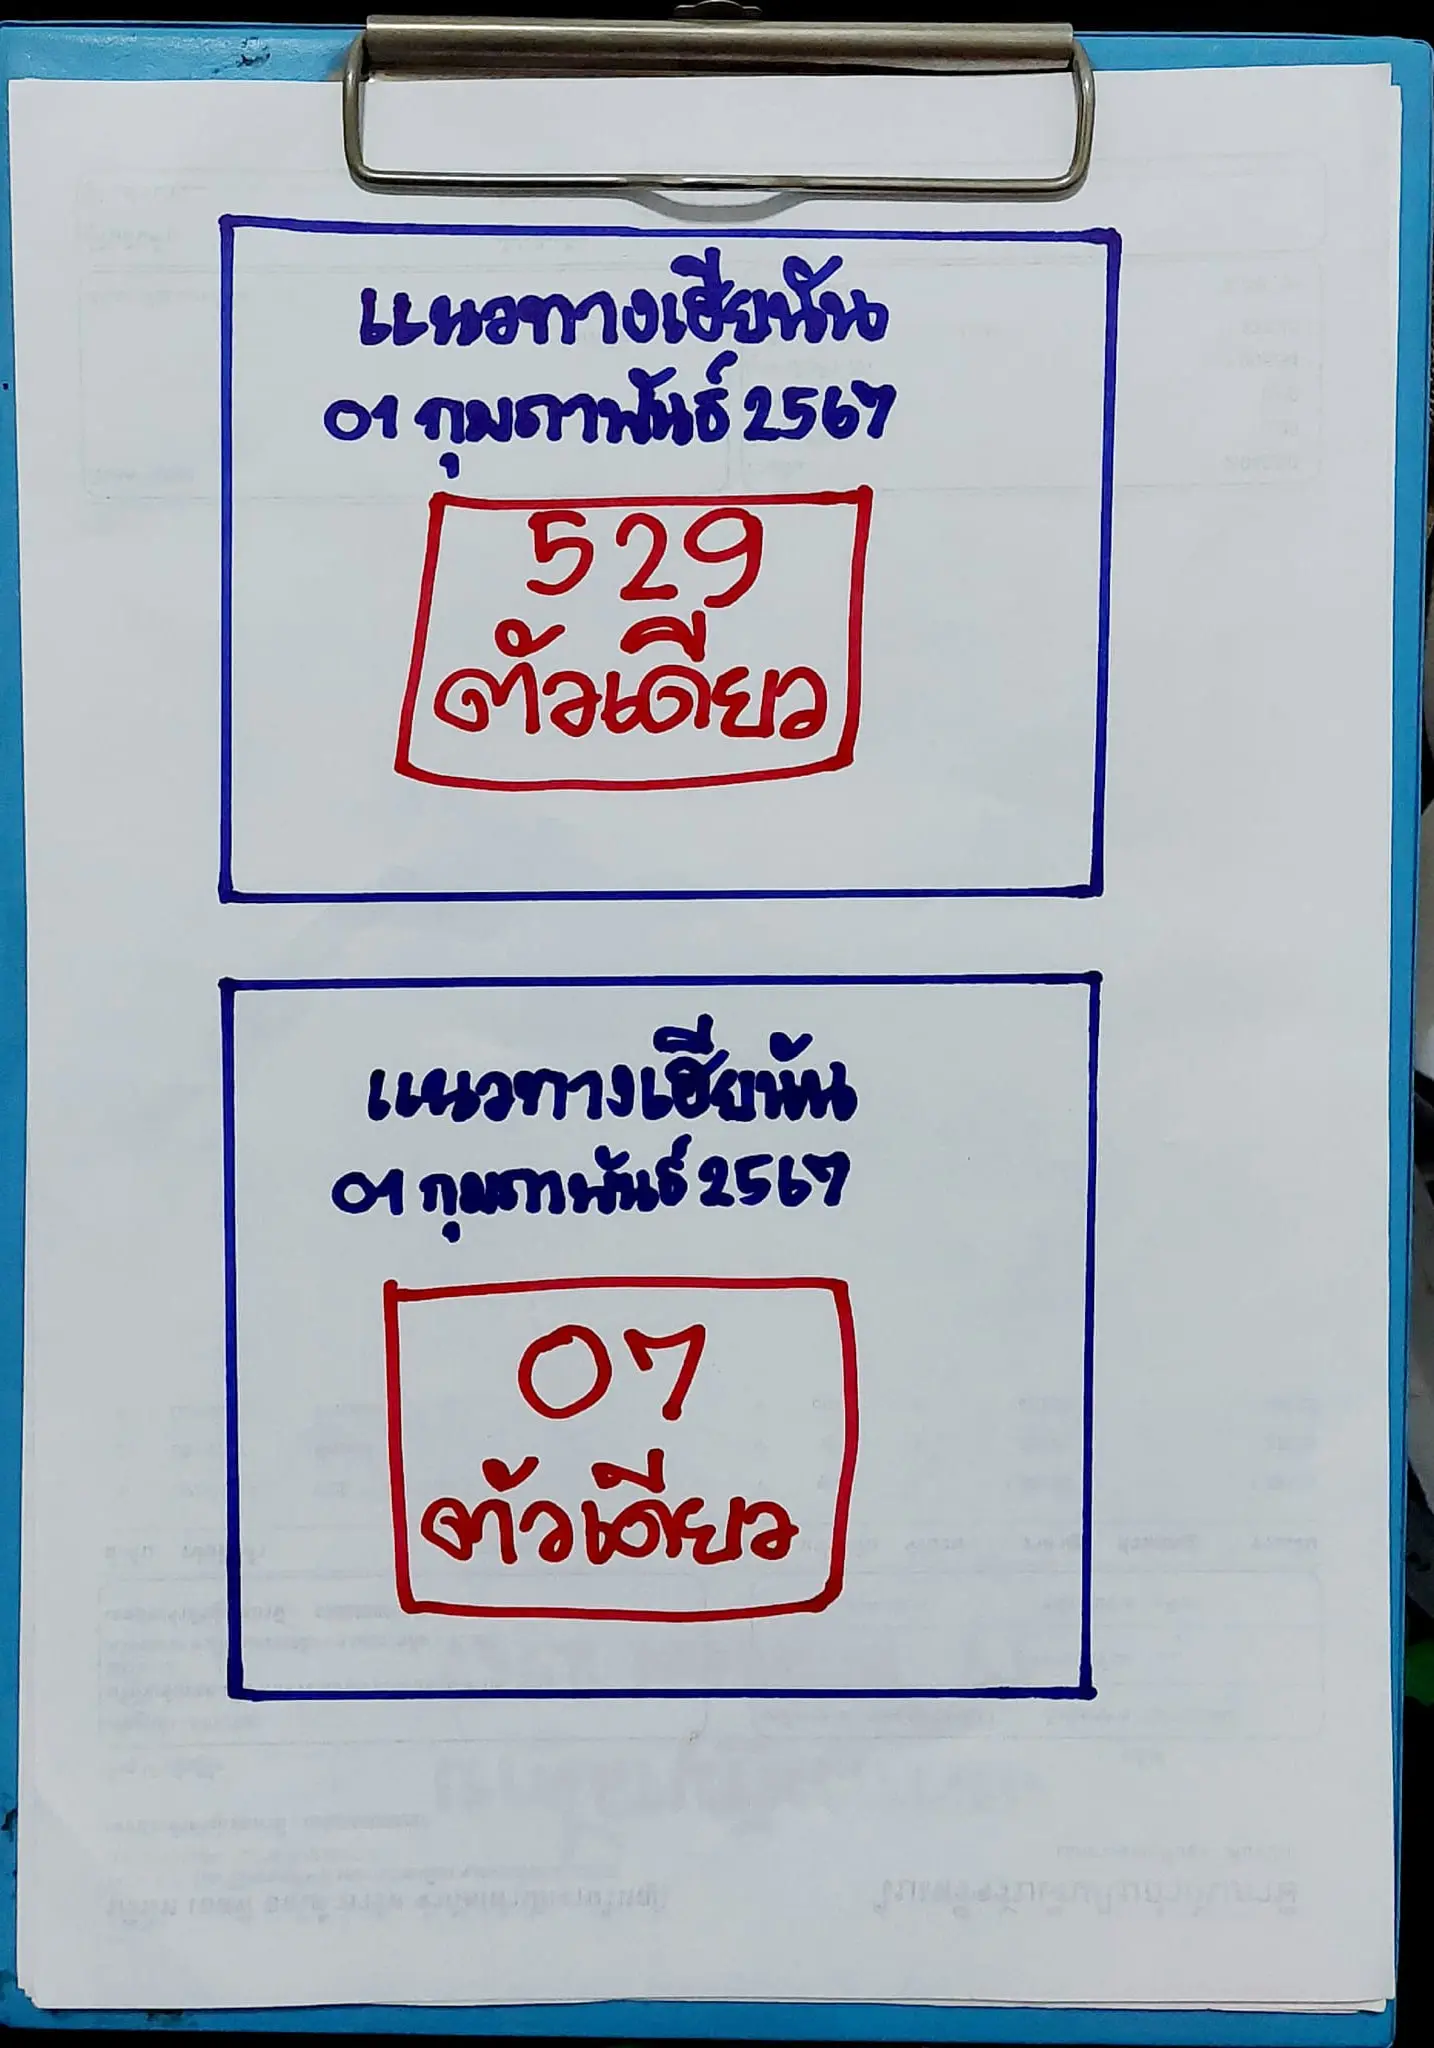 แนวทางเฮียนัน
01 กุมภาพันธ์ 2567
529
ตัวเดียว
แนวทางเฮียนัน
01 กุมภาพันธ์ 2567
07
ตัวเดียว